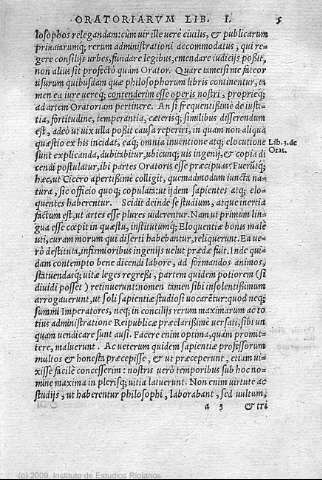 ORATORIARVM LIB. I. 5
losophos relegandam: cùm uir ille uerè ciuilis, & publicarum
priuatarumq; rerum administrationi accommodatus, qui re-
gere consilijs urbes, fundare legibus, emendare iudicijs possit,
non alius sit profectò quàm Orator. Quare tametsi me fateor
usurum quibusdam quæ philosophorum libris continentur, ta
men ea iure uereq; contenderim esse operis nostri, proprieq;
ad artem Oratoriam pertinere. An si frequentissimè de iusti-
tia, fortitudine, temperantia, cæterisq; similibus disserendum
est, adeò ut uix ulla possit causa reperiri, in quam non aliqua
quæstio ex his incidat, eaq; omnia inuentione atq; elocutione
sunt explicanda, dubitabitur, ubicunq; uis ingenij, & copia di
cendi postulatur, ibi partes Oratoris esse præcipuas? Fueruntq;
Lib. 3. de
Orat.
hæc, ut Cicero apertissimè colligit, quemadmodum iuncta na-
tura, sic officio quoq; copulata: ut ijdem sapientes atq; elo-
quentes haberentur. Scidit deinde se studium, atque inertia
factum est, ut artes esse plures uiderentur. Nam ut primum lin
gua esse cœpit in quæstu, institutumq; Eloquentiæ bonis malè
uti, curam morum qui diserti habebantur, reliquerunt. Ea ue-
rò destituta, infirmioribus ingenijs uelut prædæ fuit. Inde qui-
dam contempto bene dicendi labore, ad formandos animos,
statuendasq; uitæ leges regressi, partem quidem potiorem (si
diuidi posset) retinuerunt: nomen tamen sibi insolentissimum
arrogauerunt, ut soli sapientiæ studiosi uocarētur: quod neq;
summi Imperatores, neq; in consilijs rerum maximarum ac to
tius administratione Reipublicæ præclarissimè uersati, sibi un
quam uendicare sunt ausi. Facere enim optima, quàm promit-
tere, maluerunt. Ac ueterum quidem sapientiæ professorum
multos & honesta præcepisse, & ut præceperunt, etiam ui-
xisse facilè concesserim: nostris uerò temporibus sub hoc no-
mine maxima in plerisq; uitia latuerunt. Non enim uirtute ac
studijs, ut haberentur philosophi, laborabant, sed uultum,
a 3 & tri
(c) 2009, Instituto de Estudios Riojanos